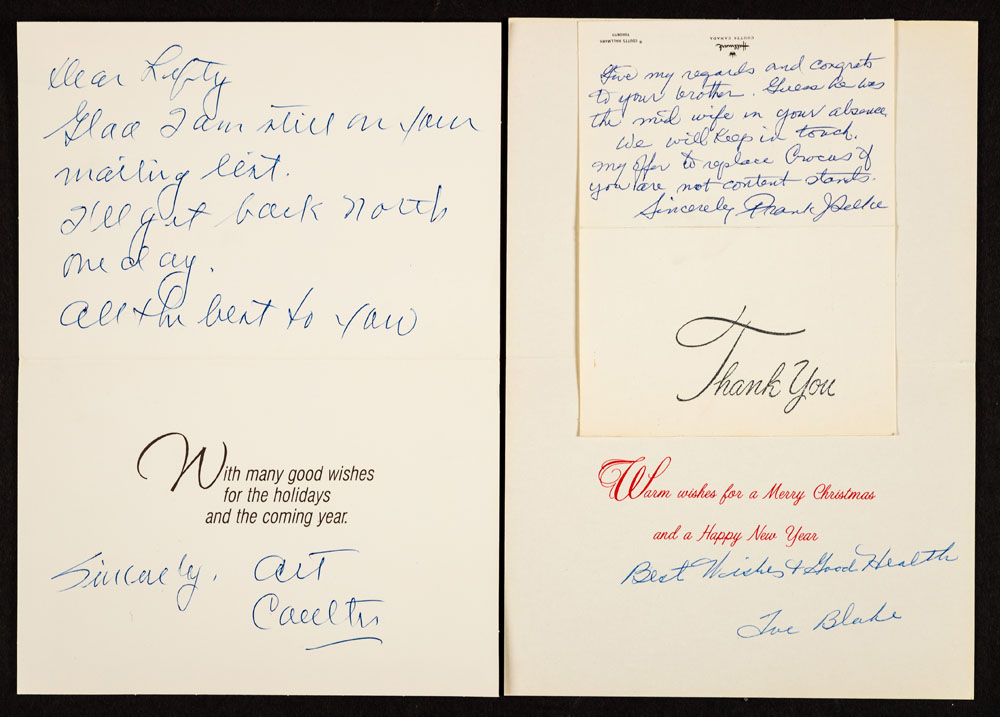 Dear Lefty
Glad I am still on your
mailing list.
I'll get back North
one day.
All the best to you
With many good wishes
for the holidays
and the coming year.
Sincerely, Art
Coulter
Hallmark
COUTTS CANADA
© COUTTS HALLMARK
TORONTO
Give my regards and congrats
to your brother. Guess he was
the mid wife in your absence.
We will keep in touch.
My offer to replace Crocus if
you are not content stands.
Sincerely Frank J Selke
Thank You
Warm wishes for a Merry Christmas
and a Happy New Year
Best Wishes & Good Health
Toe Blake